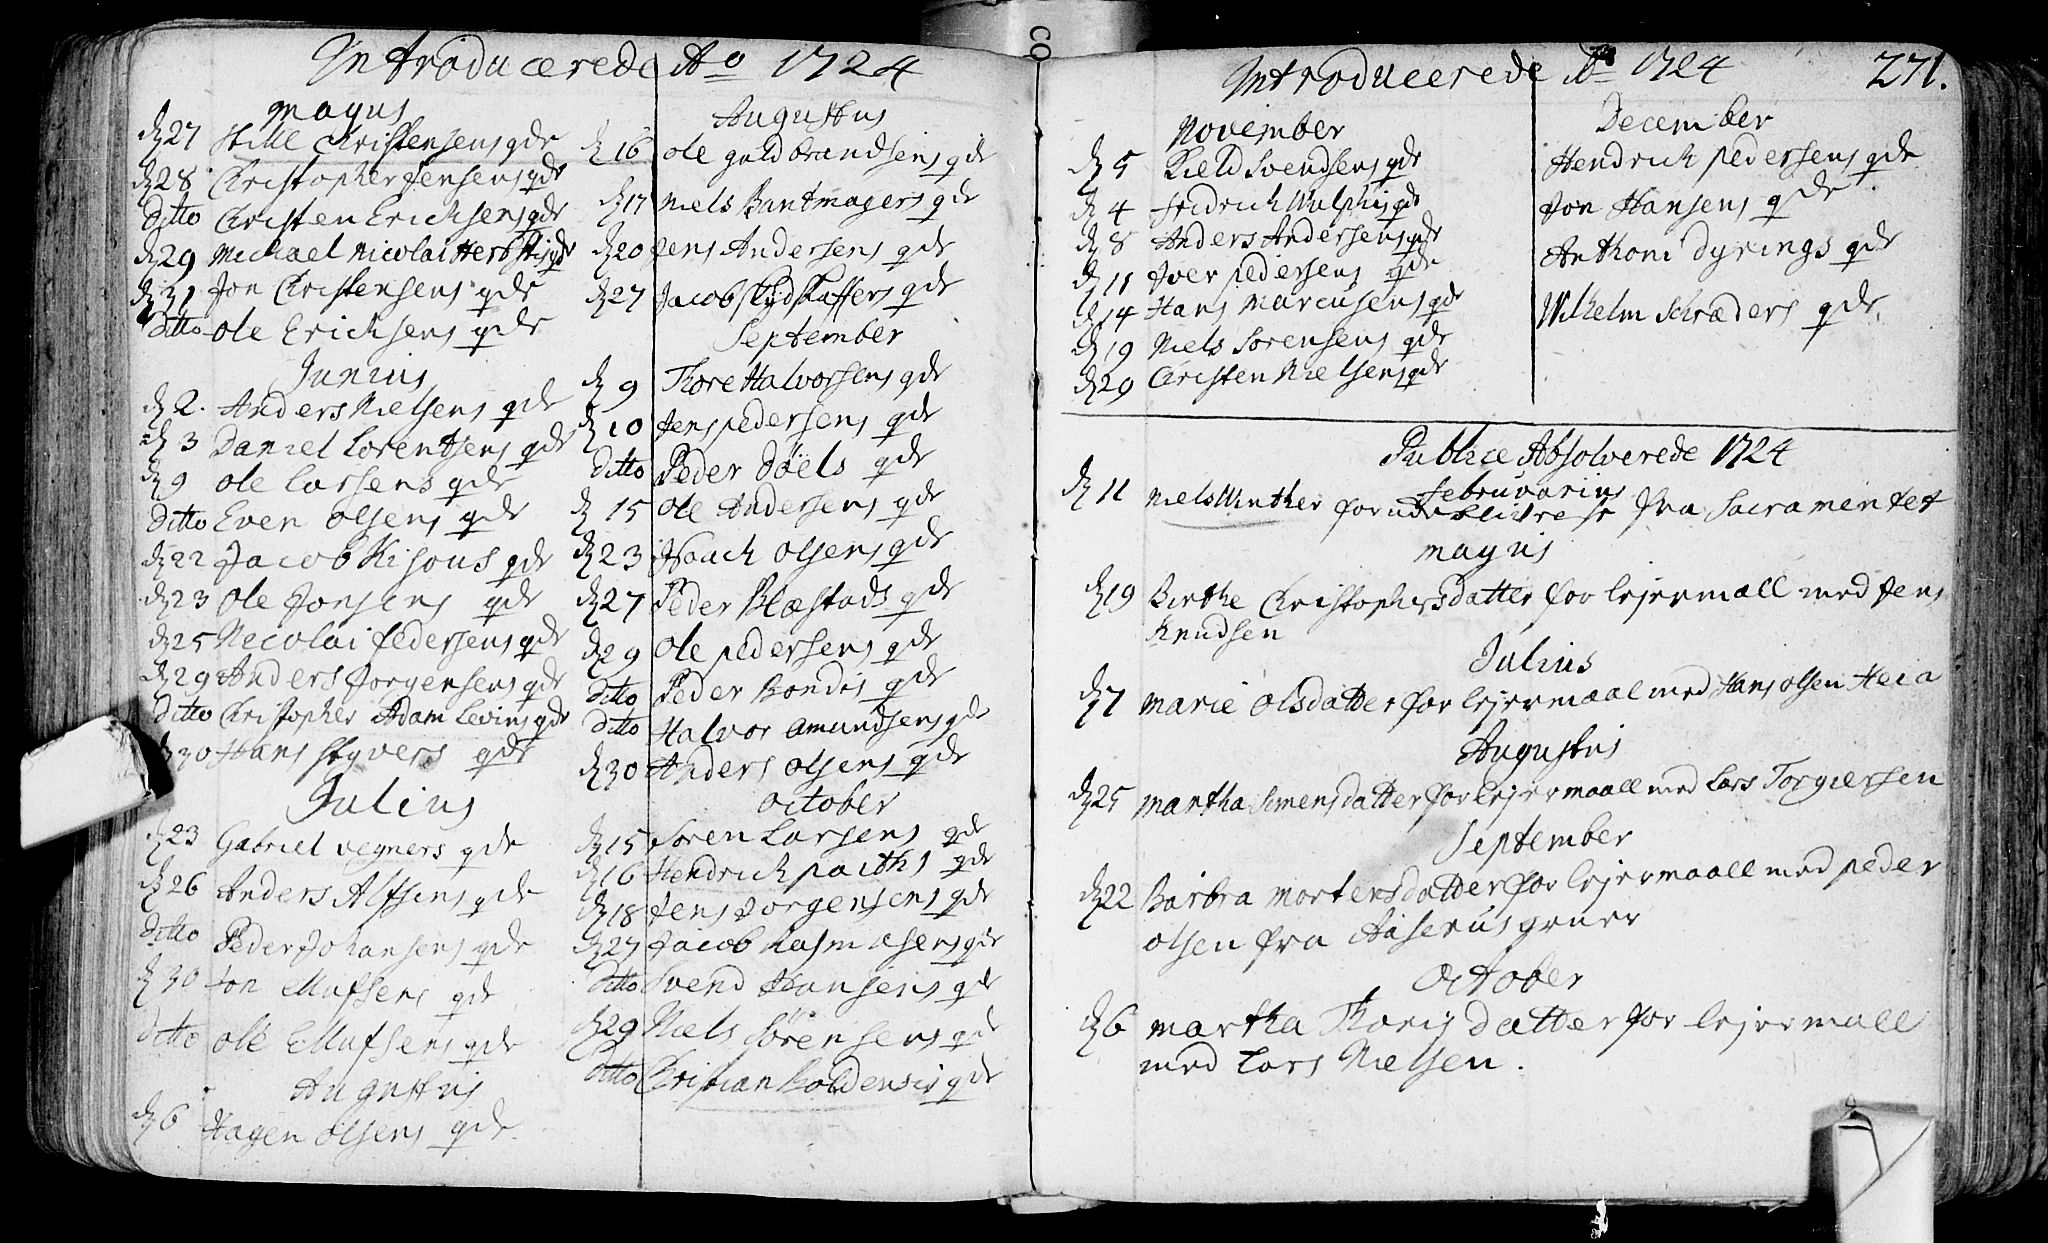 Introducerede Ao 1724
Majus
d 27 Christensens qde
d 28 Christopher Jensens qde
Ditto Christen Ericksens qde
d 29 Michael Nicolai Herbsts qde
d 31 Jon Christensens qde
Ditto Ole Ericksens qde
Junius
d 2. Anders Nielsens qde
d 3 Daniel Lorentzens qde
d 9 Ole Larsens qde
Ditto Even Olsens qde
d 22 Jacob qde
d 23 Ole Jonsens qde
d 25 Necolai Pedersens qde
d 29 Anders Jorgensens qde
Ditto Christopher Adam Levins qde
d 30 Hans Styvers qde
Julius
d 23 Gabriel Vegners qde
d 26 Anders Alfsens qde
Ditto Peder Johansens qde
d 30 Jon qde
Ditto Ole qde
Augustus
d 6 Hagen Olsens qde
Augustus
d 16 Ole Guldbrandsens qde
d 17 Niels Buntmagers qde
d 20 Jens Andersens qde
d 27 Jacob Skydskaffers qde
September
d 9 Thore Halvorsens qde
d 10 Jens Pedersens qde
Ditto Peder Döels qde
d 15 Ole Andersens qde
d 23 Isaach Olsens qde
d 27 Peder Blæstads qde
d 29 Ole Pedersens qde
Ditto Peder Bondis qde
Ditto Halvor Amundsens qde
d 30 Anders Olsens qde
October
d 15 Sören Larsens qde
d 16 Hendrich qde
d 18 Jens Jorgensens qde
d 27 Jacob Rasmusens qde
Ditto Svend Hansens qde
d 29 Niels Sörensens qde
Ditto Christian qde
Introducerede Ao 1724 271.
November
d 5 Kield Svendsens qde
d 4 Fridrich Wulphs qde
d 8 Anders Andersens qde
d 11 Joer Pedersens qde
d 14 Hans Marcusens qde
d 19 Niels Sorensens qde
d 29 Christen Nielsens qde
December
Hendrich Pedersens qde
Jon Hansens qde
Anthoni Dyrings qde
Wilhelm Schræders qde.
Publice Absolverede 1724
Februarius
d 11 Niels Winther for udeblivelse fra Sacramentet
Majus
d 19 Birthe Christophersdatter for lejermaall med Jens
Knudsen
Julius
d 7 Marie Olsdatter for lejermaal med Hans Olsen
Augustus
d 25 Martha Simensdatter for lejermaall med Lars Torgiersen
September
d 22 Barbra Mortensdatter for lejermaall med Peder
Olsen fra Aaserus gruer
October
d 6 Martha datter for lejermaall
med Lars Nielsen.